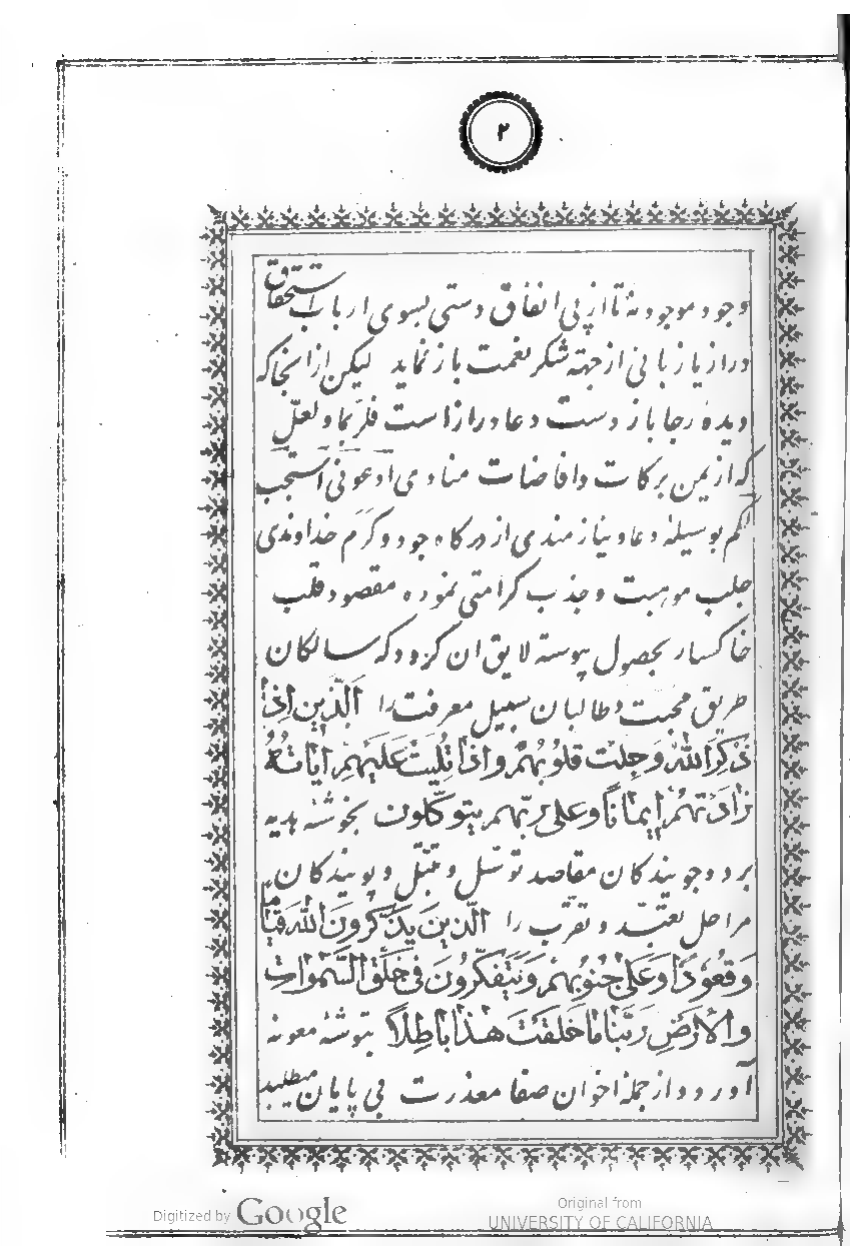 ۲
وجود موجود نه تا از پی انفاق دستی بسوی ارباب استحقاق
دراز یا زبانی از جهته شکر نعمت باز نماید لیکن از انجا که
دیدهٔ رجا باز دست دعا دراز است فلربما و لعلّ
که از یمن برکات و افاضات منادی ادعونی استجب
لکم بوسیلهٔ دعا و نیازمندی از درکاه جود و کرم خداوندی
جلب موهبت و جذب کرامتی نموده مقصود قلب
خاکسار بحصول پیوسته لایق ان کردد که سالکان
طریق محبت و طالبان سبیل معرفت را الَّذین اِذا
ذُکِرَ اللّهُ وَجِلَت قلوُبُهُم و اذا تُلِیَت عَلَیهِم ایاتُهُ
زادَتهُم اِیماناً وعلی ربّهم یتوکّلون بخوشهٔ هدیه
برد و جویندکان مقاصد توسّل و تبتّل و پویندکان
مراحل تعبّد و تقرّب را الّذینَ یذکُرونَ اللّهَ قیاماً
وَقعُوُداً وَعَلی جُنوُبِهِم وَیَتَفَکَّروُنَ فی خَلقِ السَّمواتِ
والأَرضِ رَبَّنا ما خَلَقتَ هٰذا باطِلاً بتوشهٔ معونه
آورد و از جملهٔ اخوان صفا معذرت بی پایان میطلبد
Digitized by Google
Original from
UNIVERSITY OF CALIFORNIA